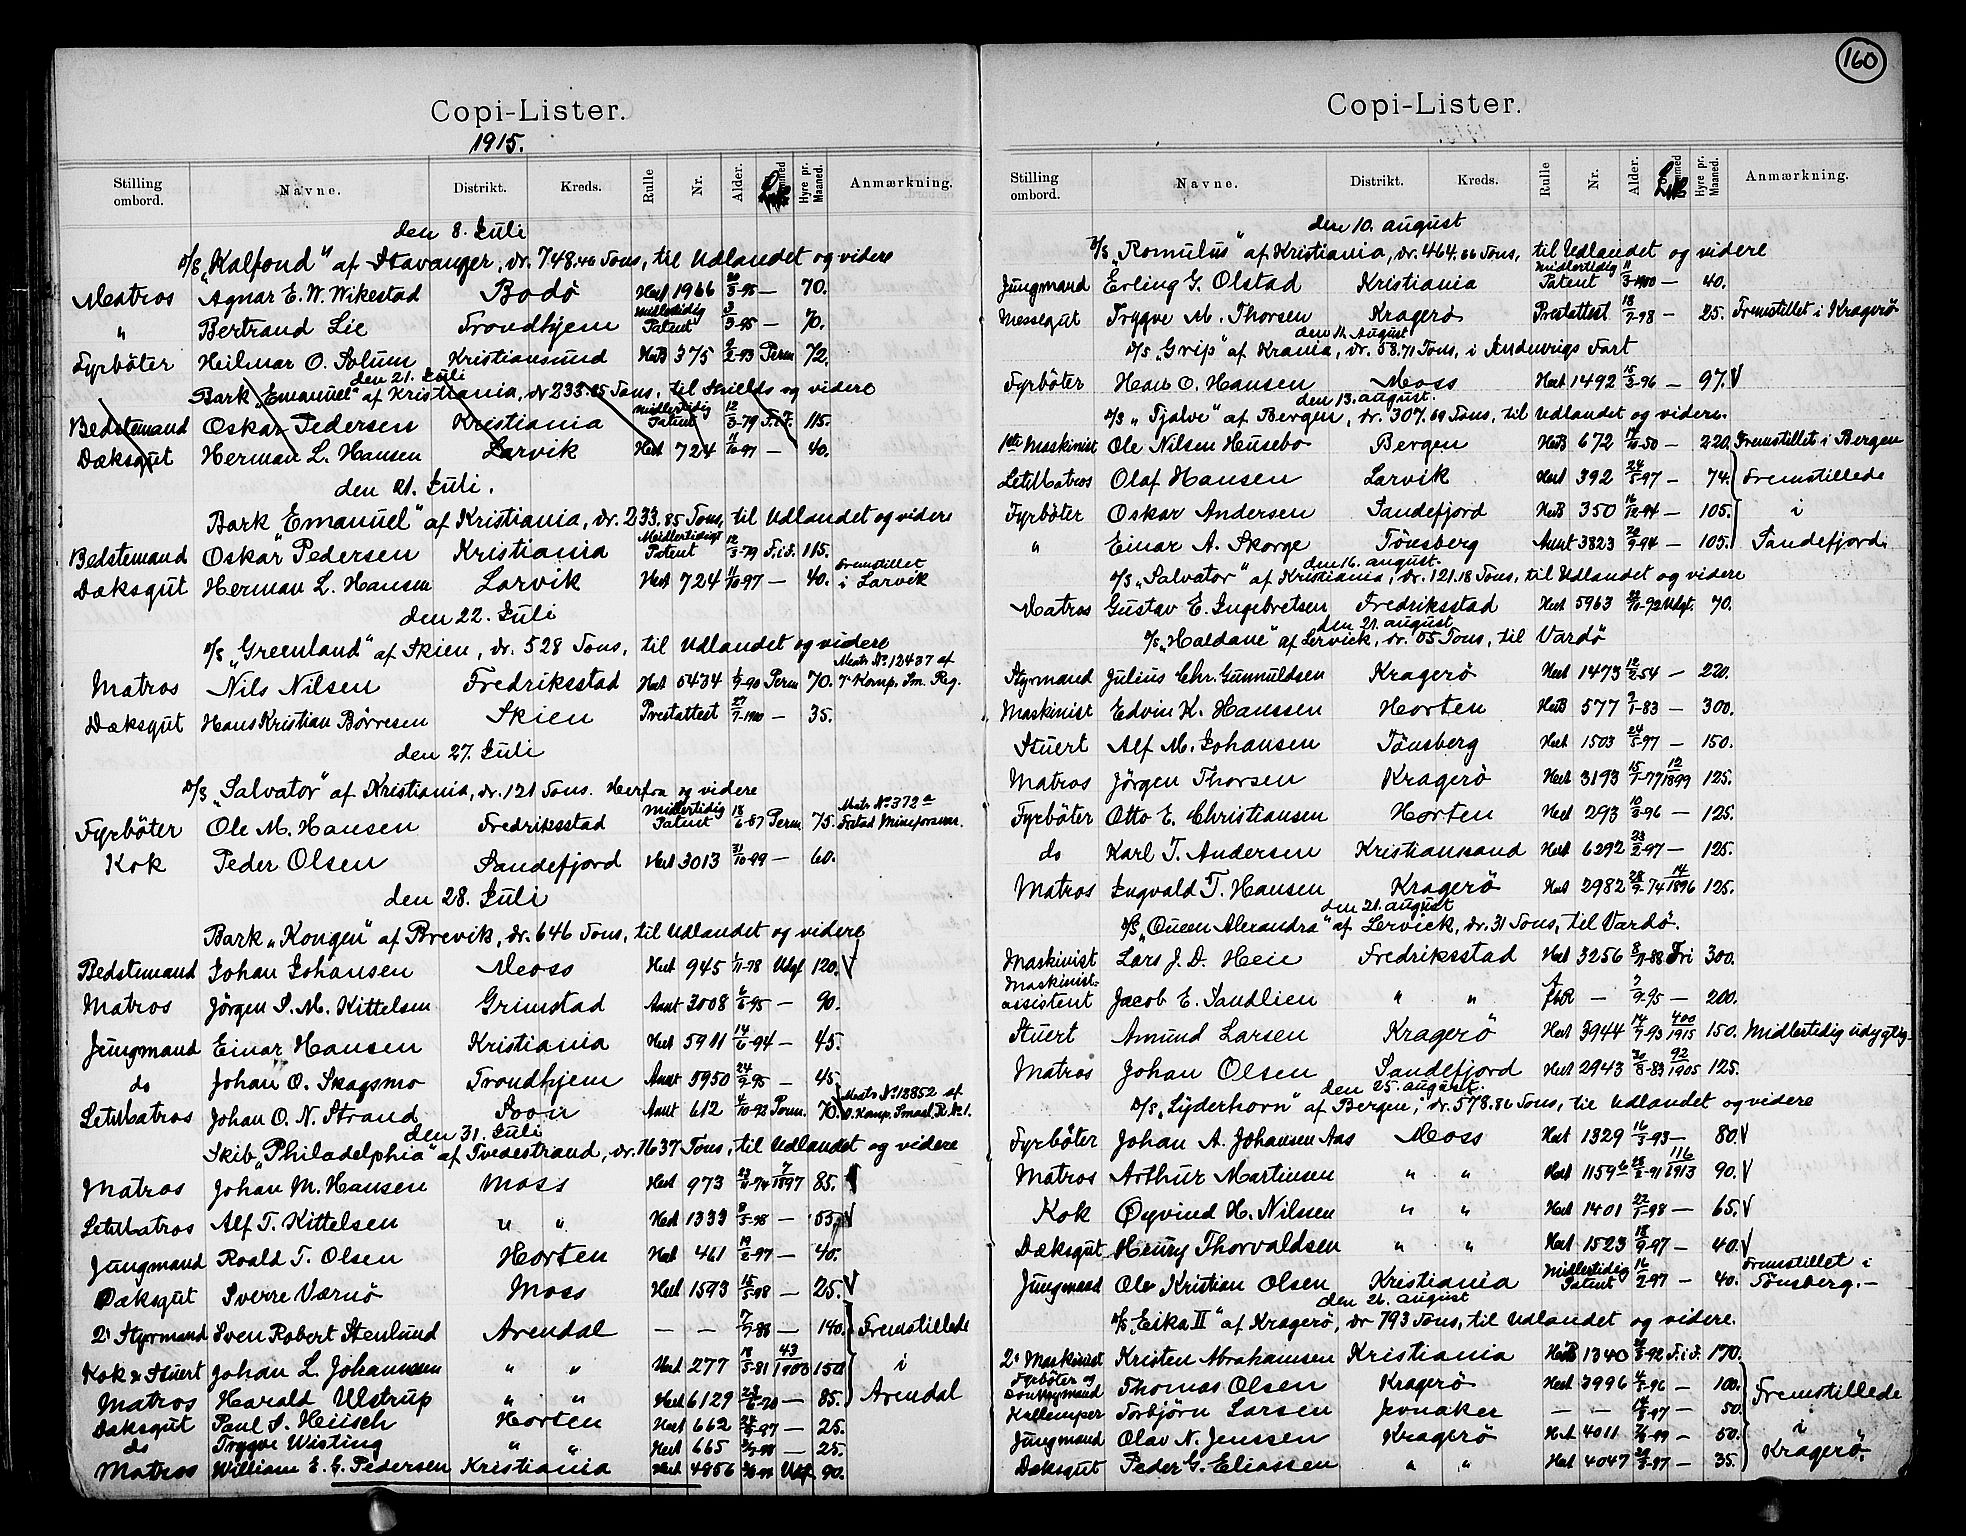 160
Copi-Lister.
1915.
Stilling ombord. Navne. Distrikt. Kreds. Rulle Nr. Alder. Hyre pr. Maaned. Anmærkning.
den 8. Juli
D/S „Kalfond" af Stavanger, dr. 748.46 Tons, til Udlandet og videre
Matros Agnar E. W. Wikestad Bodö Hert 1966 20/3-95 — 70.
" Bertrand Lie Trondhjem Midlertidig Patent 3/3-95 — 70.
Fyrböter Heilmar O. Solum Kristiansund HertB 375 9/2-93 Perm 72.
den 21. Juli
Bark „Emanuel" af Kristiania, dr 233.85 Tons, til Skields og videre
Bedstemand Oskar Pedersen Kristiania Midlertidig Patent 12/3-79 F.i.F. 115.
Dæksgut Herman L. Hansen Larvik Hert 724 11/10-97 — 40.
den 21. Juli.
Bark „Emanuel" af Kristiania, dr. 233.85 Tons, til Udlandet og videre
Bedstemand Oskar Pedersen Kristiania Midlertidigt Patent 12/3-79 F.i.F. 115.
Dæksgut Herman L. Hansen Larvik Hert 724 11/10-97 — 40. Fremstillet i Larvik
den 22. Juli
D/S „Greenland" af Skien, dr. 528 Tons, til Udlandet og videre
Matros Nils Nilsen Fredriksstad Hert 5434 9-90 Perm 70. Matr. No. 12437 af 7' Komp. Sm. Reg.
Dæksgut Hans Kristian Børresen Skien Prestattest 27/7-1900 — 35.
den 27. Juli
D/S „Salvator" af Kristiania, dr. 121 Tons. Herfra og videre
Fyrböter Ole M. Hansen Fredriksstad Midlertidig Patent 18/6-87 Perm. 75. Matr. No. 372 Frstad Mineforsvar.
Kok Peder Olsen Sandefjord Hert 3013 31/10-99 — 60.
den 28. Juli
Bark „Kongen" af Brevik, dr. 646 Tons, til Udlandet og videre
Bedstemand Johan Johansen Moss Hert 945 1/11-78 Udgt 120.
Matros Jörgen S. M. Kittelsen Grimstad Annt 3008 6/6-95 — 90.
Jungmand Einar Hansen Kristiania Hert 5911 14/6-94 — 45.
do Johan O. Skagsmo Trondhjem Annt 5950 24/9-95 — 45.
LetMatros Johan O. N. Strand Annt 612 4/10-92 Perm. 70. Matr. No. 12852 af
den 31. Juli
Skib „Philadelphia" af Tvedestrand, dr. 1637 Tons, til Udlandet og videre
Matros Johan M. Hansen Moss Hert 973 23/11-74 7/1897 85.
LetMatros Alf T. Kittelsen " " Hert 1333 9/5-98 — 55.
Jungmand Roald T. Olsen Horten Hert 461 19/2-97 — 40.
Dæksgut Sverre Værnö Moss Hert 1593 15/5-98 — 25.
2. Styrmand Sven Robert Stenlund Arendal — — 7/7-86 — 140. Fremstillede
Kok & Stuert Johan L. Johannesen " " Hert 277 18/5-81 43/1903 150. i
Matros Harald Ulstrup " " Hert 6129 — 85. Arendal
Dæksgut Paul S. Hensch Horten Hert 662 — 25.
do Trygve Wisting " " Hert 665 — 25.
Matros William E. G. Pedersen Kristiania Hert 4856 Udgt 90.
Copi-Lister.
Stilling ombord. Navne. Distrikt. Kreds. Rulle Nr. Alder. Hyre pr. Maaned. Anmærkning.
den 10. august
D/S „Romulus" af Kristiania, dr. 464.66 Tons, til Udlandet og videre
Jungmand Erling G. Olstad Kristiania Midlertidig Patent 11/3-1900 — 40.
Messegut Trygve M. Thorsen Kragerö Prestattest 18/7-98 — 25. Fremstillet i Kragerö
den 11. august
D/S „Grip" af Krania, dr. 58.71 Tons, i Indenrigs Fart
Fyrböter Hans O. Hansen Moss Hert 1492 15/3-96 — 97.
den 13. august.
D/S „Fjalve" af Bergen, dr. 307.69 Tons, til Udlandet og videre.
1ste Maskinist Ole Nilsen Husebo Bergen HertB 672 14/10-50 — 220. Fremstillet i Bergen
LetMatros Olaf Hansen Larvik Hert 392 24/5-97 — 74. Fremstillede
Fyrböter Oskar Andersen Sandefjord HertB 350 16/10-94 — 105. i
" Einar A. Skorge Tönsberg Annt 3823 9-94 — 105. Sandefjord.
den 16. august.
D/S „Salvator" af Kristiania, dr. 121.18 Tons, til Udlandet og videre
Matros Gustav E. Ingebretsen Fredriksstad Hert 5963 10-92 Udgt. 70.
den 21. august
D/S „Haldane" af Lerwick, dr. 55 Tons, til Vardö
Styrmand Julius Chr. Gunnuldsen Kragerö Hert 1473 12/2-54 — 220.
Maskinist Edvin K. Hanssen Horten HertB 577 2/1-83 — 300.
Stuert Alf M. Johansen Tönsberg Hert 1503 24/5-97 — 150.
Matros Jörgen Thorsen Kragerö Hert 3193 15/7-77 12/1899 125.
Fyrböter Otto E. Christiansen Horten Hert 293 10/8-96 — 125.
do Karl T. Andersen Kristianssand Hert 6292 23/2-97 — 125.
Matros Ingvald T. Hansen Kragerö Hert 2982 28/9-74 14/1896 125.
den 21. august
D/S „Queen Alexandra" af Lerwick, dr. 31 Tons, til Vardö.
Maskinist Lars J. D. Heie Fredriksstad Hert 3256 8/7-88 Fri 300.
Maskinist-assistent Jacob E. Sandlien " " — 7/9-95 — 200.
Stuert Amund Larsen Kragerö Hert 3944 14/7-93 400/1915 150. Midlertidig udygtig.
Matros Johan Olsen Sandefjord Hert 2943 30/8-83 92/1905 125.
den 25. august.
D/S „Lyderhorn" af Bergen, dr. 578.86 Tons, til Udlandet og videre
Fyrböter Johan A. Johansen Aas Moss Hert 1329 16/3-93 — 80.
Matros Arthur Martinsen " " Hert 1159 6 28/2-91 116/1913 90.
Kok Øyvind H. Nilsen " " Hert 1401 22/1-98 — 65.
Dæksgut Henry Thorvaldsen " " Hert 1523 18/9-97 — 40.
Jungmand Ole Kristian Olsen Kristiania Midlertidig Patent 16/2-97 — 40. Fremstillet i Tönsberg. —
den 26. august
D/S „Eika II" af Kragerö, dr 793 Tons, til Udlandet og videre.
2. Maskinist Kristen Abrahamsen Kristiania HertB 1340 3-92 F.i.F. 170.
Fyrböter og Donkeymand Thomas Olsen Kragerö Hert 3996 5-96 — 100. Fremstillede
Kullemper Torbjörn Larsen Jevnaker — — 14/8-97 — 50.
Jungmand Olav N. Jenssen Kragerö Hert 4011 — 50. i
Dæksgut Peder G. Eliassen " " Hert 4047 — 35. Kragerö.